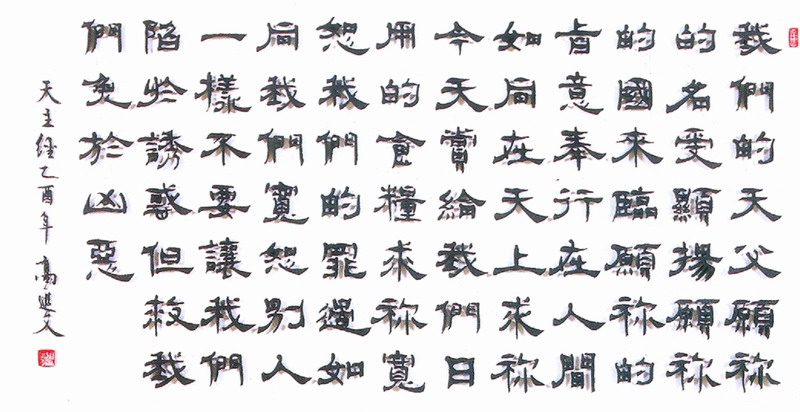 我們的天父願祢
的名受顯揚願祢
的國來臨願祢的
旨意奉行在人間
如同在天上求祢
今天賞給我們日
用的食糧求祢寬
恕我們的罪過如
同我們寬恕別人
一樣不要讓我們
陷於誘惑但救我
們免於凶惡
天主經乙酉年 高